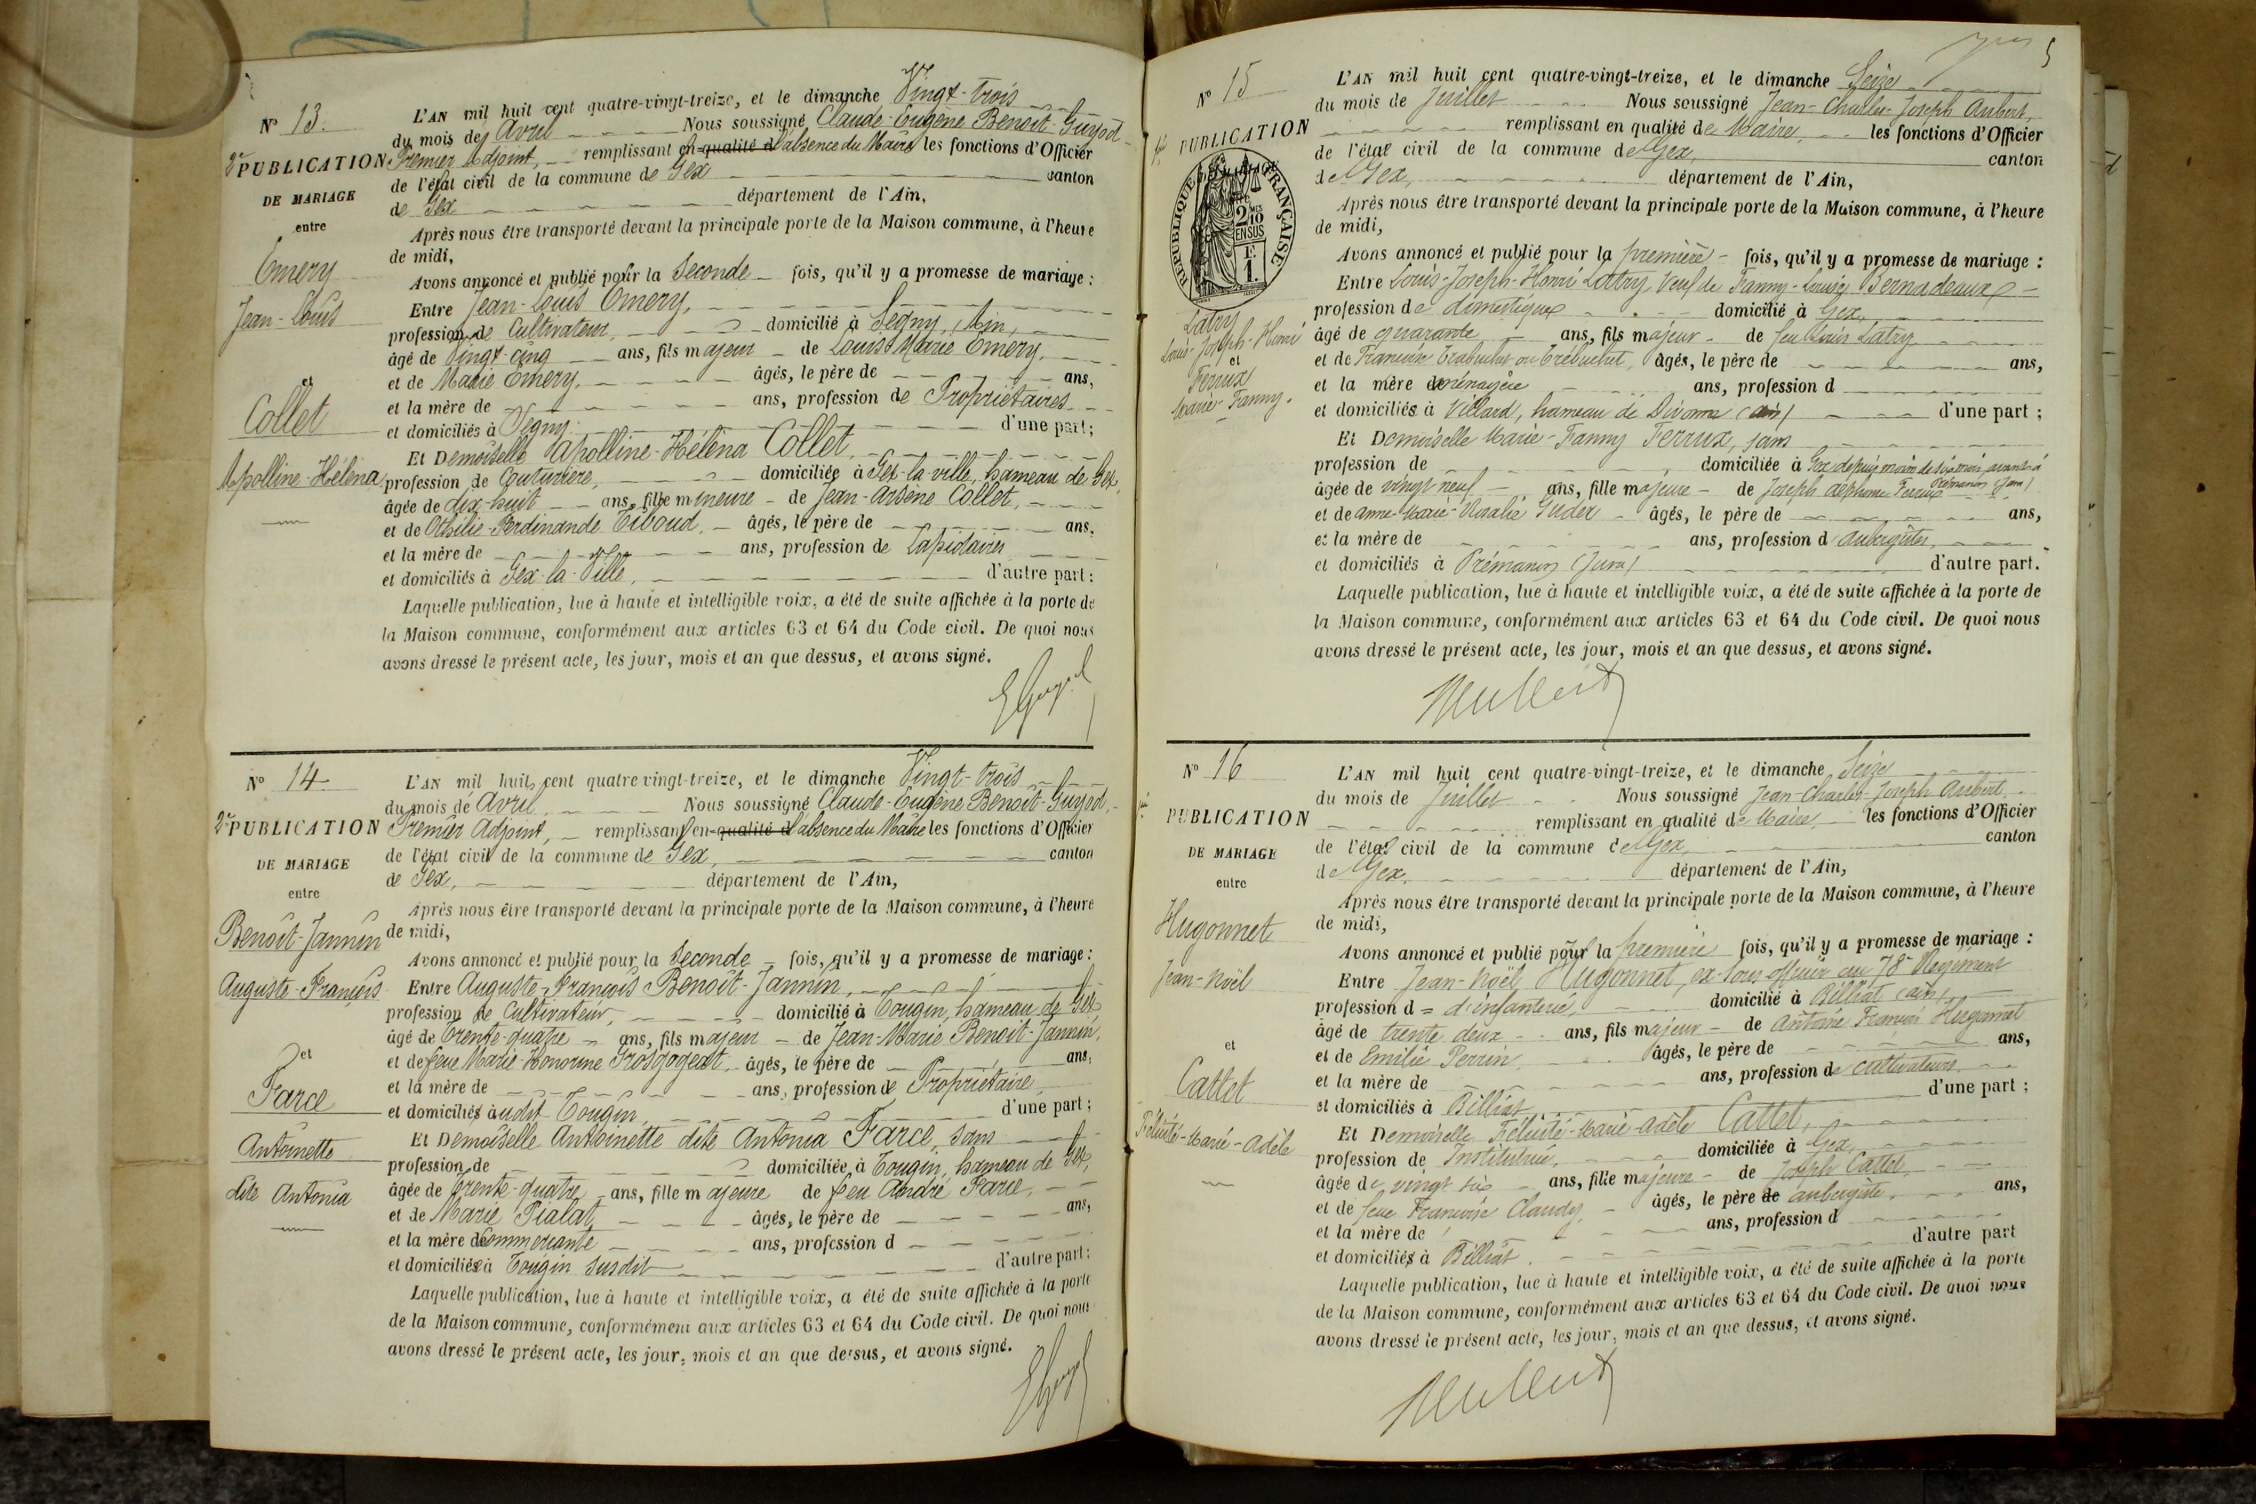 N° 13.
2e PUBLICATION
DE MARIAGE
entre
Emery
Jean-Louis
et
Collet
Apolline-Héléna
L'AN mil huit cent quatre-vingt-treize, et le dimanche Vingt-trois
du mois de Avril Nous soussigné Claude-Eugène Benoit-Guyod
Premier Adjoint, remplissant en qualité d l'absence du Maire les fonctions d'Officier
de l'état civil de la commune de Gex canton
de Gex département de l'Ain,
Après nous être transporté devant la principale porte de la Maison commune, à l'heure
de midi,
Avons annoncé et publié pour la Seconde fois, qu'il y a promesse de mariage :
Entre Jean-Louis Emery,
profession de Cultivateur, domicilié à Segny, (Ain,
âgé de Vingt-cinq ans, fils majeur de Louis Marie Emery,
et de Marie Emery, âgés, le père de ans,
et la mère de ans, profession de Propriétaires
et domiciliés à Segny d'une part;
Et Demoiselle Apolline-Héléna Collet,
profession de Couturière, domiciliée à Gex-la-ville, hameau de Gex,
âgée de dix-huit ans, fille mineure de Jean-Arsène Collet,
et de Othilie-Ferdinande Tiboud, âgés, le père de ans,
et la mère de ans, profession de Lapidaires
et domiciliés à Gex-la-Ville, d'autre part;
Laquelle publication, lue à haute et intelligible voix, a été de suite affichée à la porte de
la Maison commune, conformément aux articles 63 et 64 du Code civil. De quoi nous
avons dressé le présent acte, les jour, mois et an que dessus, et avons signé.
N° 14
2e PUBLICATION
DE MARIAGE
entre
Benoit-Jannin
Auguste-François
et
Farce
Antoinette
dite Antonia
L'AN mil huit cent quatre vingt-treize, et le dimanche Vingt-trois
du mois de Avril Nous soussigné Claude-Eugène Benoit-Guyod,
Premier Adjoint, remplissant en qualité d l'absence du Maire les fonctions d'Officier
de l'état civil de la commune de Gex, canton
de Gex, département de l'Ain,
Après nous être transporté devant la principale porte de la Maison commune, à l'heure
de midi,
Avons annoncé et publié pour la Seconde fois, qu'il y a promesse de mariage :
Entre Auguste-François Benoit-Jannin,
profession de Cultivateur, domicilié à Tougin, hameau de Gex
âgé de Trente-quatre ans, fils majeur de Jean-Marie Benoit-Jannin,
et de feue Marie-Honorine Grosgogeat âgés, le père de ans,
et la mère de ans, profession de Propriétaire
et domiciliés audit Tougin, d'une part ;
Et Demoiselle Antoinette dite Antonia Farce, sans
profession de domiciliée à Tougin, hameau de Gex,
âgée de Trente-quatre ans, fille majeure de feu André Farce,
et de Marie Pialat, âgés, le père de ans,
et la mère de Commerçante ans, profession d
et domiciliée à Tougin susdit d'autre part;
Laquelle publication, lue à haute et intelligible voix, a été de suite affichée à la porte
de la Maison commune, conformément aux articles 63 et 64 du Code civil. De quoi nous
avons dressé le présent acte, les jour, mois et an que dessus, et avons signé.
5
N° 15
PUBLICATION
DE MARIAGE
RÉPUBLIQUE FRANÇAISE
2/10 EN SUS
1 F.
Latry
Louis-Joseph-Henri
et
Ferrux
Marie-Fanny.
L'AN mil huit cent quatre-vingt-treize, et le dimanche Seize
du mois de Juillet Nous soussigné Jean-Charles-Joseph Aubert,
remplissant en qualité de Maire, les fonctions d'Officier
de l'état civil de la commune de Gex, canton
de Gex, département de l'Ain,
Après nous être transporté devant la principale porte de la Maison commune, à l'heure
de midi,
Avons annoncé et publié pour la première fois, qu'il y a promesse de mariage :
Entre Louis-Joseph-Henri Latry, Veuf de Fanny-Louise Bernadeaux
profession de domestique domicilié à Gex,
âgé de quarante ans, fils majeur de feu Louis Latry
et de Francoise Trabuchet ou Trébuchet, âgés, le père de ans,
et la mère de ménagère ans, profession d
et domiciliés à Villard, hameau de Divonne (Ain) d'une part ;
Et Demoiselle Marie-Fanny Ferrux, sans
profession de domiciliée à Gex depuis moins de six mois, avant à
Prémanon (Jura)
âgée de vingt neuf ans, fille majeure de Joseph Alphonse Ferrux
et de Anne-Marie-Rosalie Guder âgés, le père de ans,
et la mère de ans, profession d aubergistes,
et domiciliés à Prémanon (Jura) d'autre part.
Laquelle publication, lue à haute et intelligible voix, a été de suite affichée à la porte de
la Maison commune, conformément aux articles 63 et 64 du Code civil. De quoi nous
avons dressé le présent acte, les jour, mois et an que dessus, et avons signé.
N° 16
PUBLICATION
DE MARIAGE
entre
Hugonnet
Jean-Noël
et
Cattet
Félicité-Marie-Adèle
L'AN mil huit cent quatre-vingt-treize, et le dimanche Seize
du mois de Juillet Nous soussigné Jean-Charles-Joseph Aubert,
remplissant en qualité de Maire, les fonctions d'Officier
de l'état civil de la commune de Gex, canton
de Gex, département de l'Ain,
Après nous être transporté devant la principale porte de la Maison commune, à l'heure
de midi,
Avons annoncé et publié pour la première fois, qu'il y a promesse de mariage :
Entre Jean-Noël Hugonnet, ex-sous-officier au 78e Régiment
profession d = d'infanterie, domicilié à Billiat (Ain),
âgé de trente deux ans, fils majeur de Antoine François Hugonnet
et de Emilie Perrin âgés, le père de ans,
et la mère de ans, profession de cultivateurs
et domiciliés à Billiat d'une part ;
Et Demoiselle Félicité-Marie-Adèle Cattet,
profession de Institutrice, domiciliée à Gex,
âgée de vingt six ans, fille majeure de Joseph Cattet
et de feue Françoise Claudy, âgés, le père de aubergiste, ans,
et la mère de ans, profession d
et domiciliés à Billiat. d'autre part
Laquelle publication, lue à haute et intelligible voix, a été de suite affichée à la porte
de la Maison commune, conformément aux articles 63 et 64 du Code civil. De quoi nous
avons dressé le présent acte, les jour, mois et an que dessus, et avons signé.